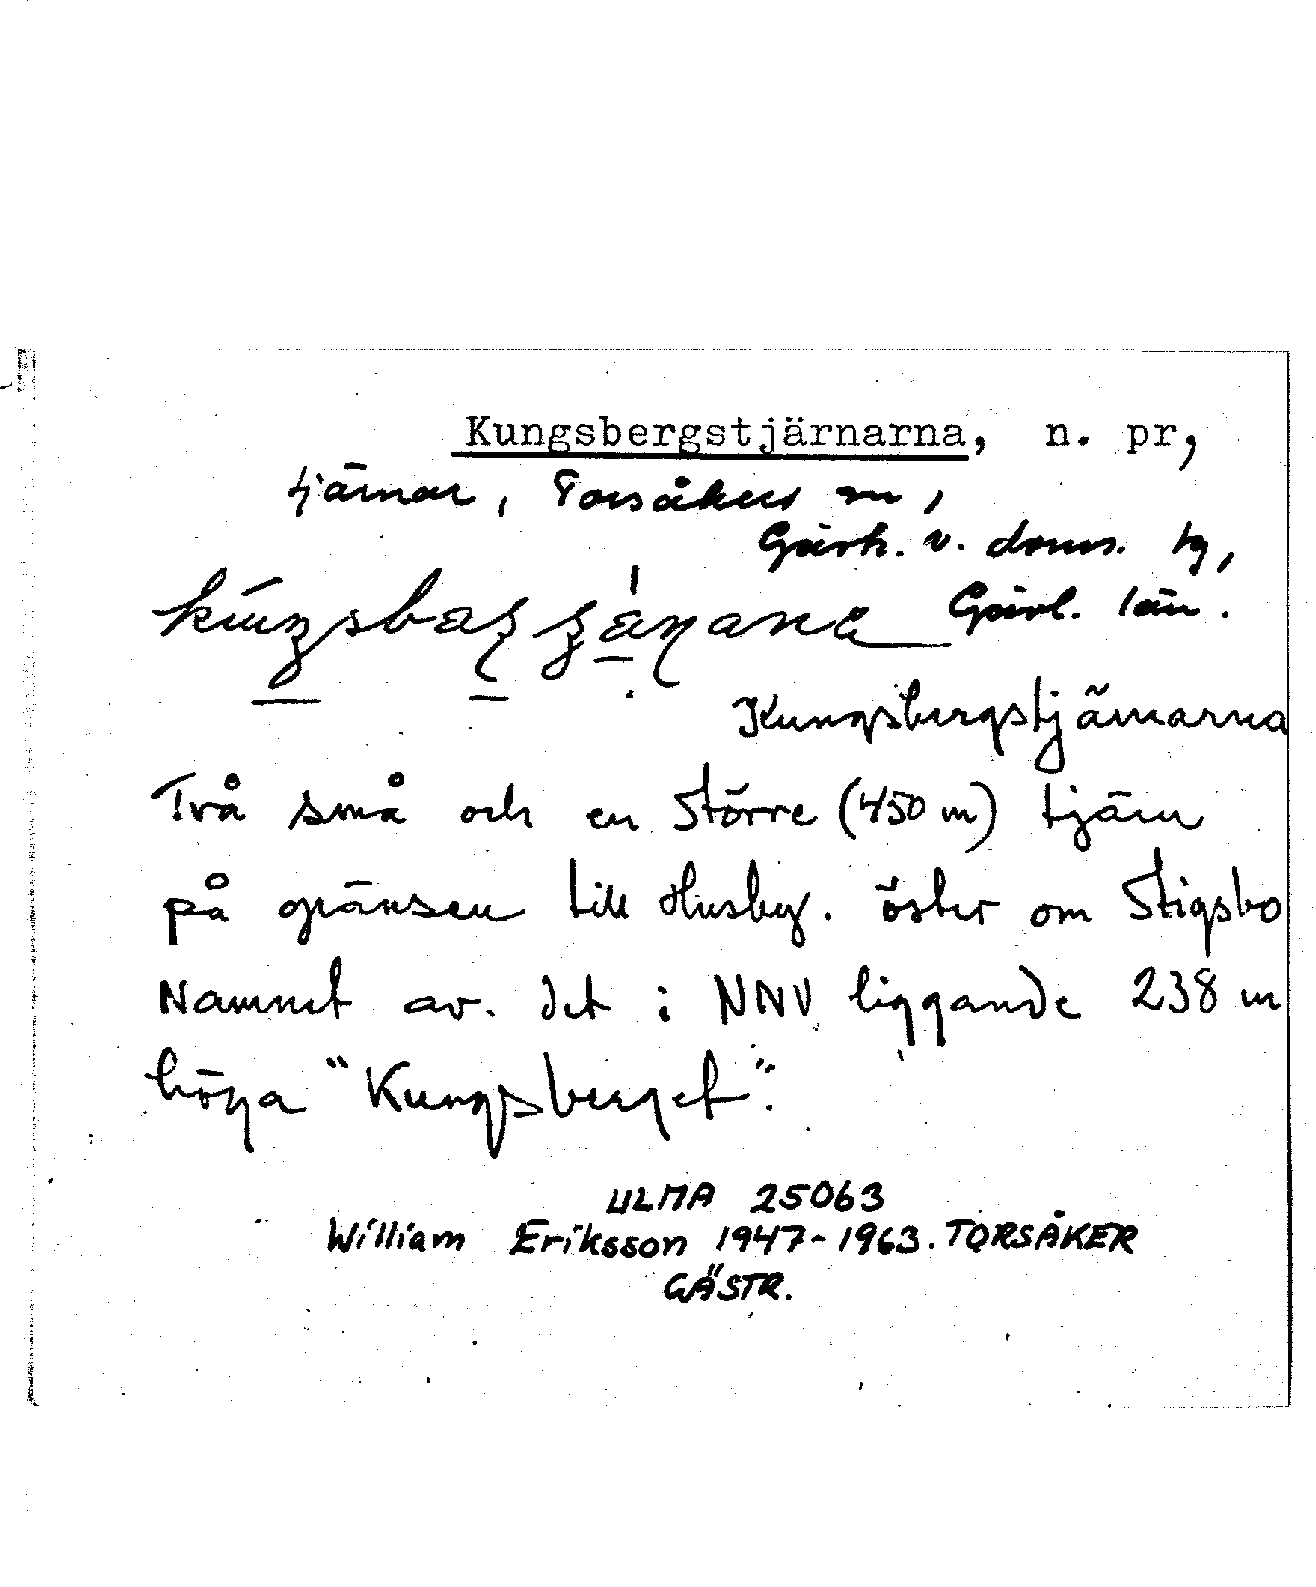 Kungsbergstjärnarna, n. pr,
tjärnar, Torsåkers sn,
Gästr. v. doms. tg,
Gävl. län.
Kungsbergstjärnarna
Två små och en större (450 m) tjärn
på gränsen till Husby. öster om Stigsbo
Namnet av. det i NNV liggande 238 m
höga "Kungsberget".
ULMA 25063
William Eriksson 1947-1963. TORSÅKER
GÄSTR.